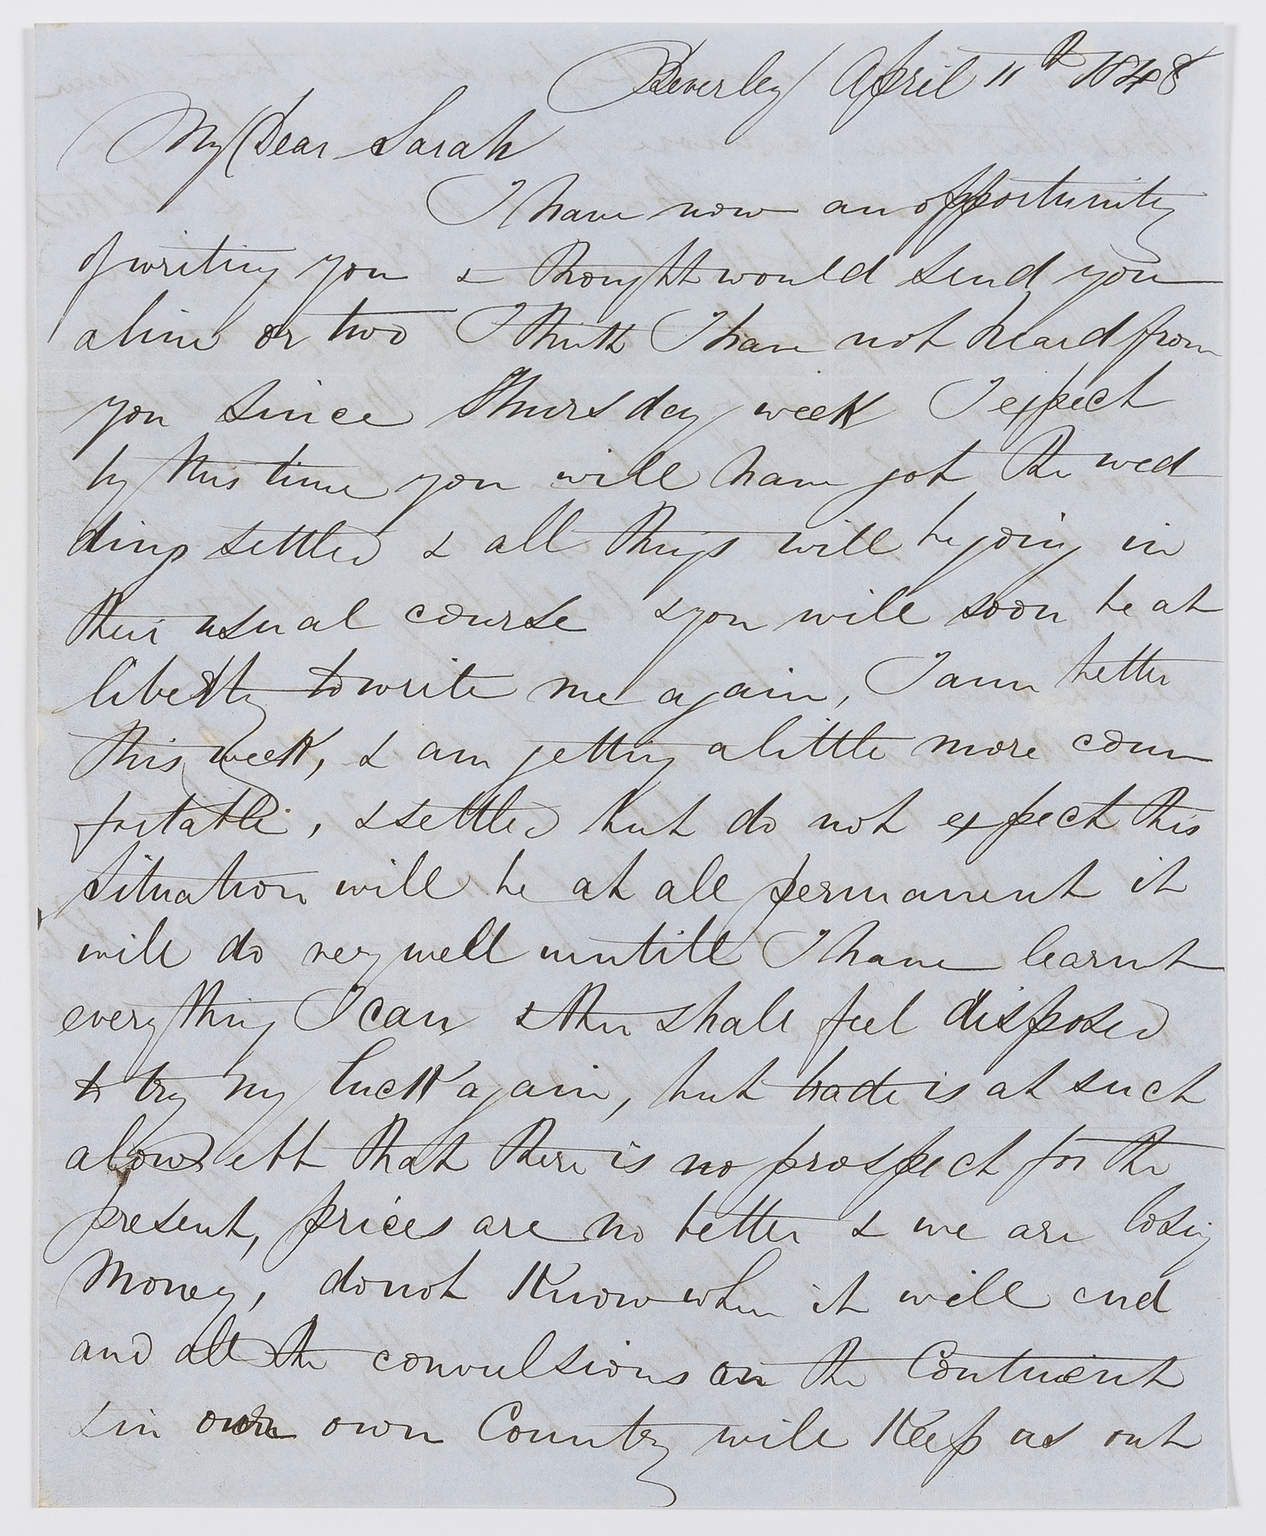 Beverley April 11th 1848
My Dear Sarah
I have now an opportunity
of writing you & thought would send you
a line or two I think I have not heard from
you since Thursday week I expect
by this time you will have got the wed
dings settled & all things will be going in
their usual course & you will soon be at
liberty to write me again, I am better
this week, & am getting a little more com
fortable, & settled but do not expect this
situation will be at all permanent it
will do very well untill I have learnt
everything I can & then shall feel disposed
to try my luck again, but trade is at such
a low ebb that there is no prospect for the
present, prices are no better & we are losing
Money, do not Know when it will end
and all the convulsions on the Continent
& in our own Country will Keep us out